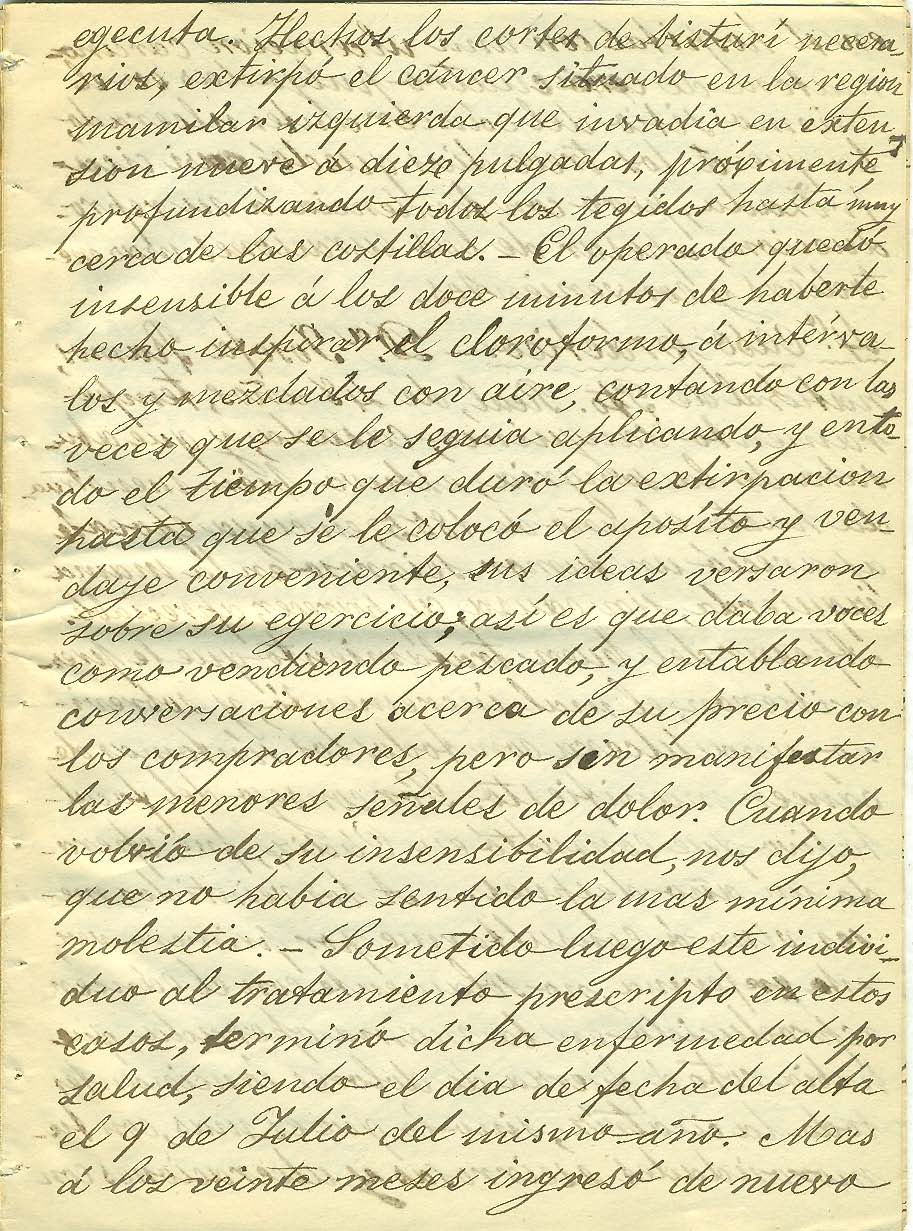 egecuta. Hechos los cortes de bisturí necesa
rios, extirpó el cáncer situado en la region
mamilar izquierda que invadia en exten
sion nueve á dieze pulgadas, próximente,
profundizando todos los tegidos hasta muy
cerca de las costillas. - El operado quedó
insensible á los doce minutos de haberle
hecho inspirar el cloroformo, á intérva
los y mezclados con aire, contando con las
veces que se le seguia aplicando, y en to
do el tiempo que duró la extirpacion
hasta que se le colocó el aposito y ven
daje conveniente, sus ideas versaron
sobre su egercicio; así es que daba voces
como vendiendo pescado, y entablando
conversaciones acerca de su precio con
los compradores, pero sin manifestar
las menores señales de dolor. Cuando
volvió de su insensibilidad, nos dijo,
que no habia sentido la mas mínima
molestia. - Sometido luego este indivi-
duo al tratamiento prescripto en estos
casos, terminó dicha enfermedad por
salud, siendo el dia de fecha del alta
el 9 de Julio del mismo año. Mas
á los veinte meses ingresó de nuevo